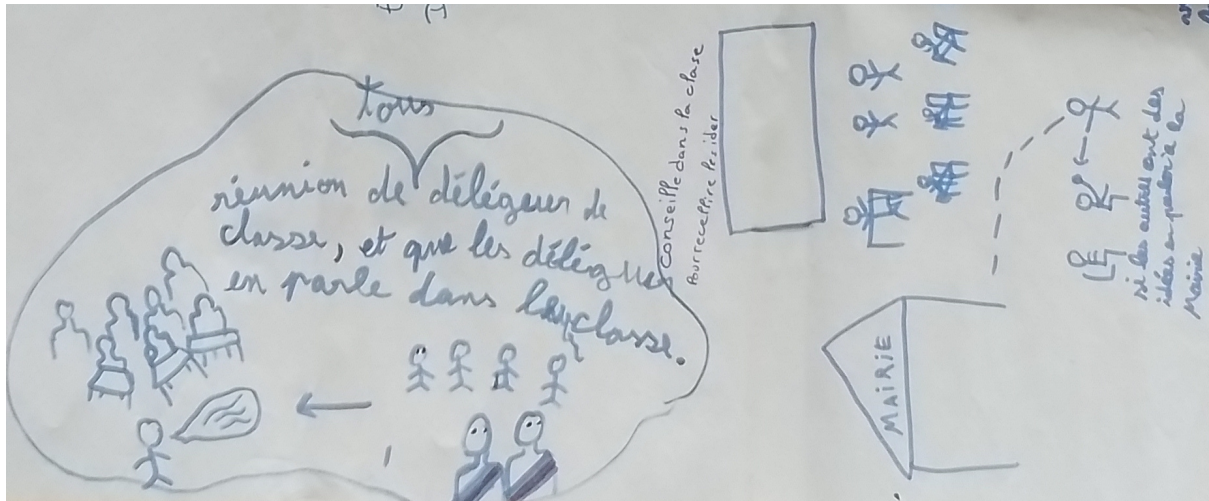 tous
réunion de délégues de
classe, et que les délégues
en parle dans leur classe.
Conseille dans la classe
Pour
MAIRIE
si les autres ont des
idées en parler a la
Mairie